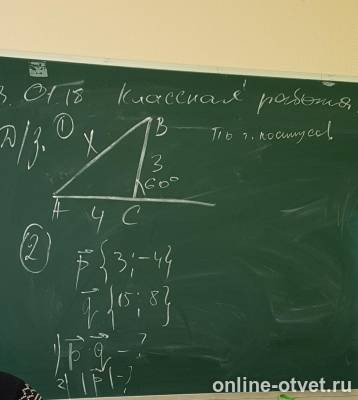 3. 01.18 Классная работа
Д/З. ① По т. косинусов
B
X
3
60°
A
4 C
②
p {3; -4}
q {15; 8}
1) p q - ?
2) |p| - ?
online-otvet.ru